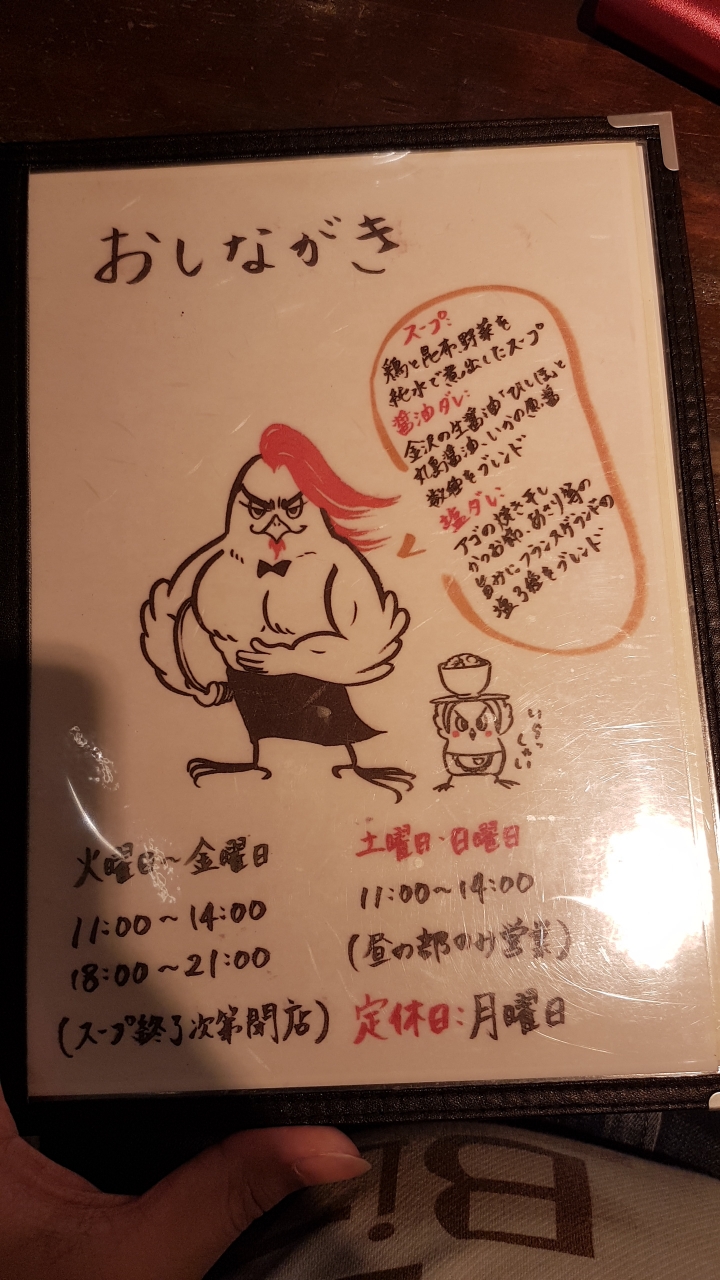 おしながき
スープ:
鶏と昆布野菜を
純水で煮出したスープ
醤油ダレ:
金沢の生醤油「ひしほ」と
丸島醤油、いかの魚醤
数種をブレンド
塩ダレ:
アゴの焼き干し
かつお節、あさり等の
旨みにフランスゲランドの
塩3種をブレンド
いらっ
しゃい
火曜日〜金曜日
11:00〜14:00
18:00〜21:00
(スープ終了次第閉店)
土曜日・日曜日
11:00〜14:00
(昼の部のみ営業)
定休日:月曜日